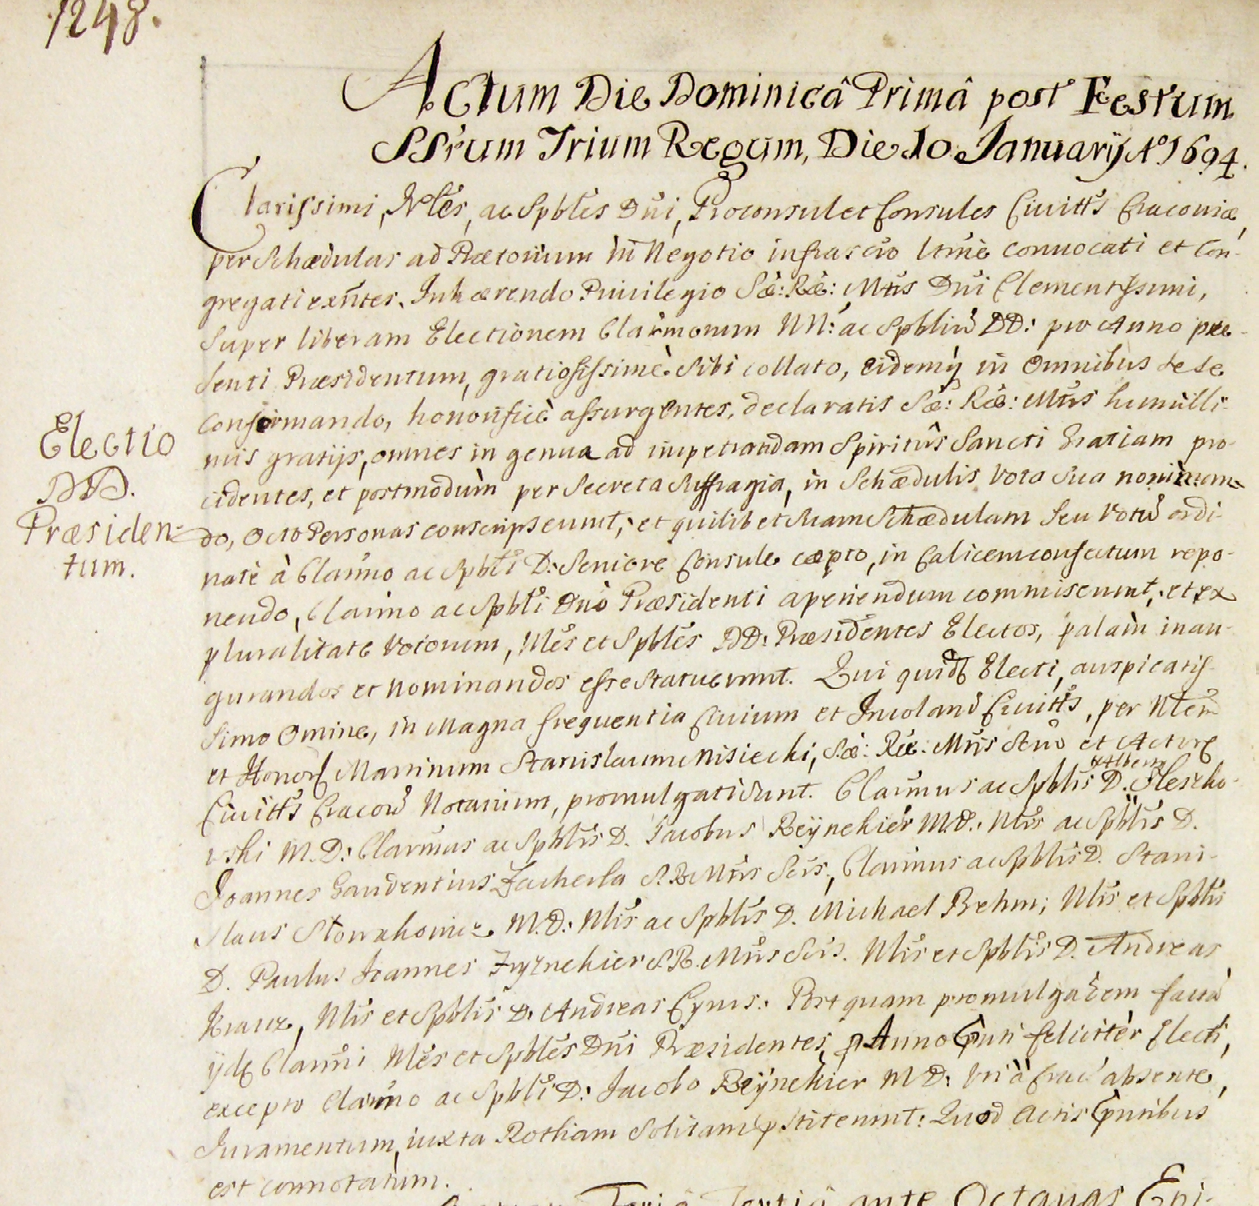 1248.
Actum Die Dominicâ Primâ post Festum
SSrum Trium Regum, Die 10 Januarij Aº 1694.
Clarissimi, Nles, ac Spbles Dñi, Proconsul et Consules Civittis Cracoviæ,
per Schædulas ad Prætorium in Negotio infrascrō ltimē convocati et Con-
gregati exñtes. Inhærendo Privilegio Sæ: Ræ: Mttis Dñi Clementissimi,
super liberam Electionem Clarmorum NN: ac Spbliū DD: pro Anno præ-
senti Præsidentum, gratiosissimè Sibi collato, eidemq in omnibus se se
conformando, honorificè assurgentes, declaratis Sæ: Ræ: Mttis humilli-
mis gratijs, omnes in genua ad impetrandam Spiritûs Sancti Gratiam pro-
cidentes, et postmodum per Secreta Suffragia, in Schædulis vota sua nominan-
do, octo Personas conscripserunt, et quilibet suam Schædulam seu votū ordi-
natè à Clarmo ac Spbli D: Seniore Consule cæpto, in Calicem confectum repo-
nendo, Clarmo ac Spbli Dnō Præsidenti aperiendum commiserunt, et ex
pluralitate votorum, Nles et Spbles DD: Præsidentes Electos, palam inau-
gurandos et nominandos esse statuerunt. Qui quidē Electi, auspicatis-
simo Omine, in Magna frequentia Civium et Incolarū Civittis, per Nlem
et Honor Martinum Stanislaum Nisiecki, Sæ: Ræ: Mttis Secriū et Actorū
Civittis Cracov Notarium, promulgati sunt. Clarmus ac Spblis D. Adalbertus Sleszko-
wski M.D: Clarmus ac Spblis D. Jacobus Reÿnekier M.D: Nlis ac Spblis D.
Joannes Gaudentius Zacherla S.R.Mttis Scrs, Clarmus ac Spblis D. Stani-
slaus Słowakowicz M.D: Nlis ac Spblis D. Michael Behm; Nlis et Spblis
D. Paulus Joannes Frÿznekier S.R.Mttis Scrs. Nlis et Spblis D. Andreas
Krauz, Nlis et Spblis D. Andreas Cyrus. Postquam promulgaōem factā
ijdē Clarmi Nles et Spbles Dñi Præsidentes, p Anno pñti feliciter Electi,
excepto Clarmo ac Spbli D: Jacobo Reÿnekier M D: vti à Crac absente,
Juramentum, iuxta Rotham solitam pstiterunt: Quod Actis pñtibus
est connotatum.
Electio
DD.
Præsiden-
tum.
Feria Tertiâ ante Octavas Epi-